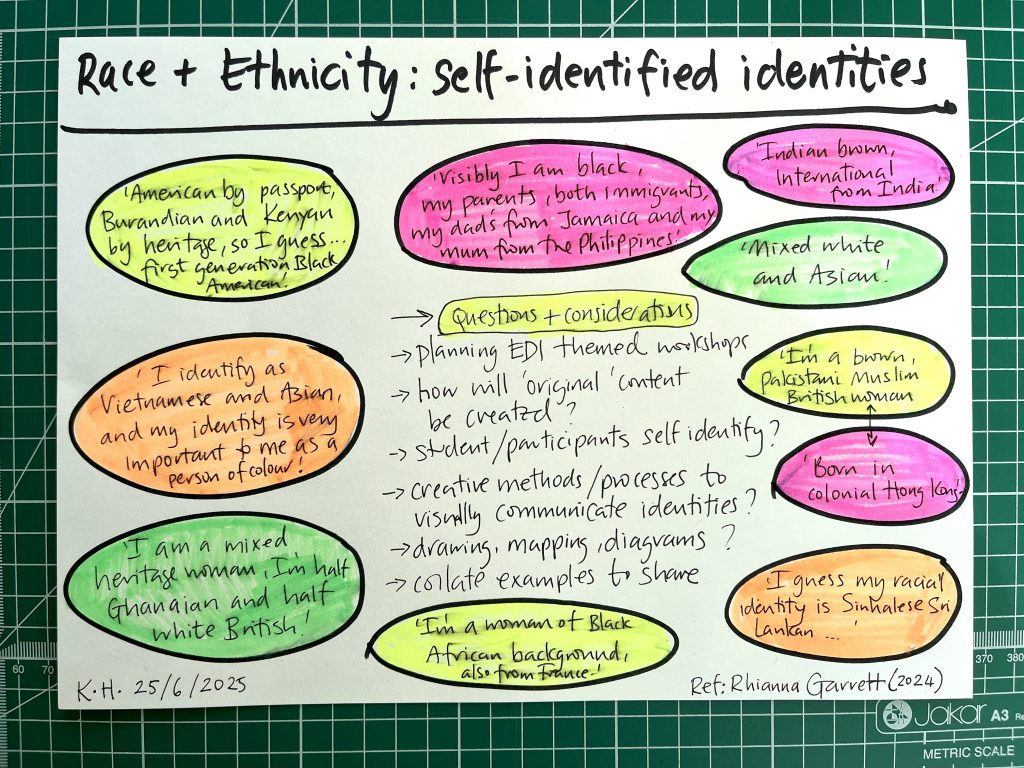 Race + Ethnicity: Self-identified identities
'American by passport,
Burandian and Kenyan
by heritage, so I guess...
first generation Black
American!'
'I identify as
Vietnamese and Asian,
and my identity is very
important to me as a
person of colour!'
'I am a mixed
heritage woman, I'm half
Ghanaian and half
white British!'
'Visibly I am black,
my parents, both immigrants,
my dad's from Jamaica and my
mum from the Philippines!'
→ Questions + considerations
→ planning EDI themed workshops
→ how will 'original' content
be created?
→ student/participants self identify?
→ creative methods/processes to
visually communicate identities?
→ drawing, mapping, diagrams?
→ collate examples to share
'I'm a woman of Black
African background,
also from France.'
'Indian brown,
International
from India'
'Mixed white
and Asian!'
'I'm a brown,
Pakistani Muslim
British woman
'Born in
colonial Hong Kong'
'I guess my racial
identity is Sinhalese Sri
Lankan ...'
K.H. 25/6/2025
Ref: Rhianna Garrett (2024)
60
70
370
380
Jakar A3
METRIC SCALE